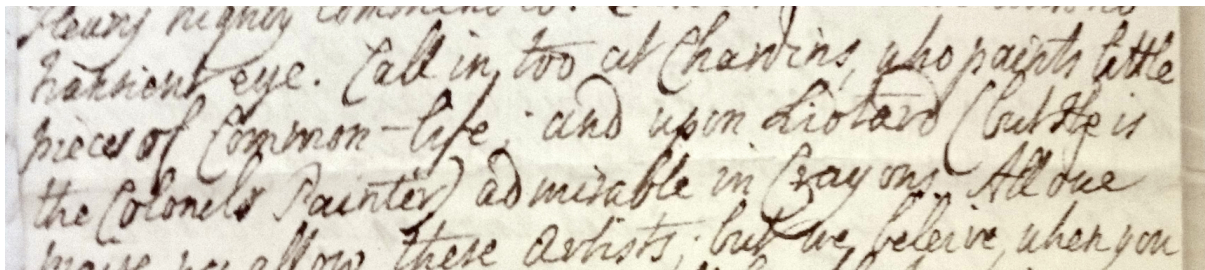 highly
transient eye. Call in, too at Chardins, who paints little
pieces of Common-life, and upon Liotard (but He is
the Colonels Painter) admirable in Crayons. All due
praise we allow these Artists, but we beleive, when you